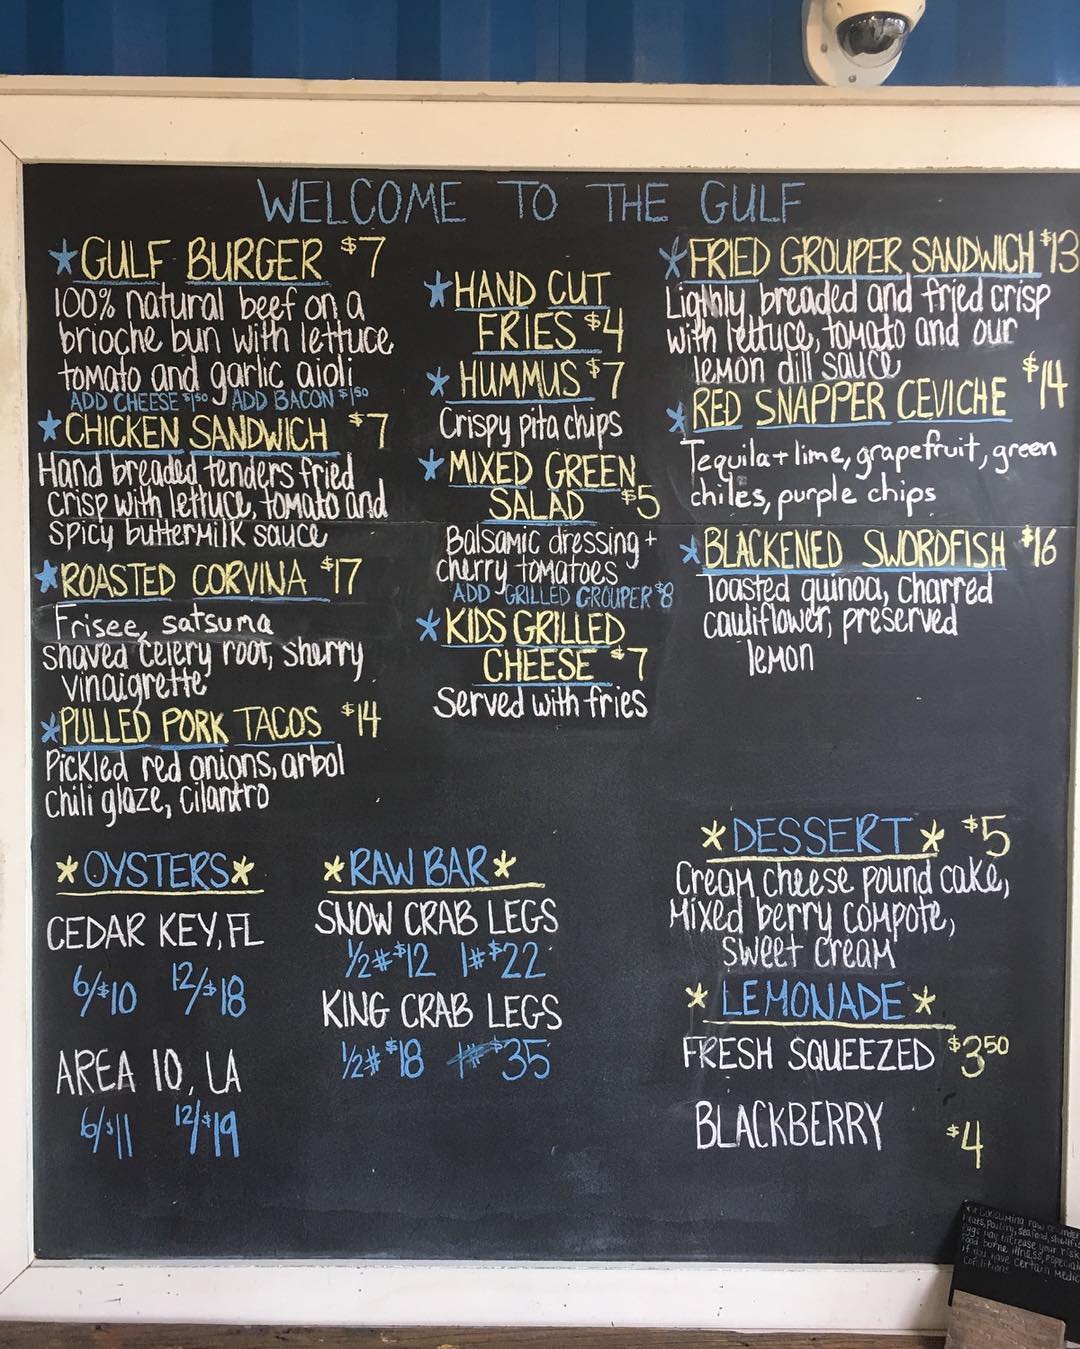 WELCOME TO THE GULF
*GULF BURGER $7
100% natural beef on a
brioche bun with lettuce
tomato and garlic aioli
ADD CHEESE $1.50 ADD BACON $1.50
*CHICKEN SANDWICH $7
Hand breaded tenders fried
crisp with lettuce, tomato and
spicy buttermilk sauce
*ROASTED CORVINA $17
Frisee, satsuma
shaved celery root, sherry
vinaigrette
*PULLED PORK TACOS $14
Pickled red onions, arbol
chili glaze, cilantro
*HAND CUT
FRIES $4
*HUMMUS $7
Crispy pita chips
*MIXED GREEN
SALAD $5
Balsamic dressing +
cherry tomatoes
ADD GRILLED GROUPER $8
*KIDS GRILLED
CHEESE $7
Served with fries
*FRIED GROUPER SANDWICH $13
Lighly breaded and fried crisp
with lettuce, tomato and our
lemon dill sauce
*RED SNAPPER CEVICHE $14
Tequila + lime, grapefruit, green
chiles, purple chips
*BLACKENED SWORDFISH $16
Toasted quinoa, charred
cauliflower, preserved
lemon
*OYSTERS*
CEDAR KEY, FL
6/$10 12/$18
AREA 10, LA
6/$11 12/$19
*RAW BAR*
SNOW CRAB LEGS
1/2# $12 1# $22
KING CRAB LEGS
1/2# $18 1# $35
*DESSERT* $5
Cream cheese pound cake,
Mixed berry compote,
sweet cream
*LEMONADE*
FRESH SQUEEZED $3.50
BLACKBERRY $4
Consuming raw or under
seafood,
eggs may increase your risk
food borne illness,
if you have certain
conditions